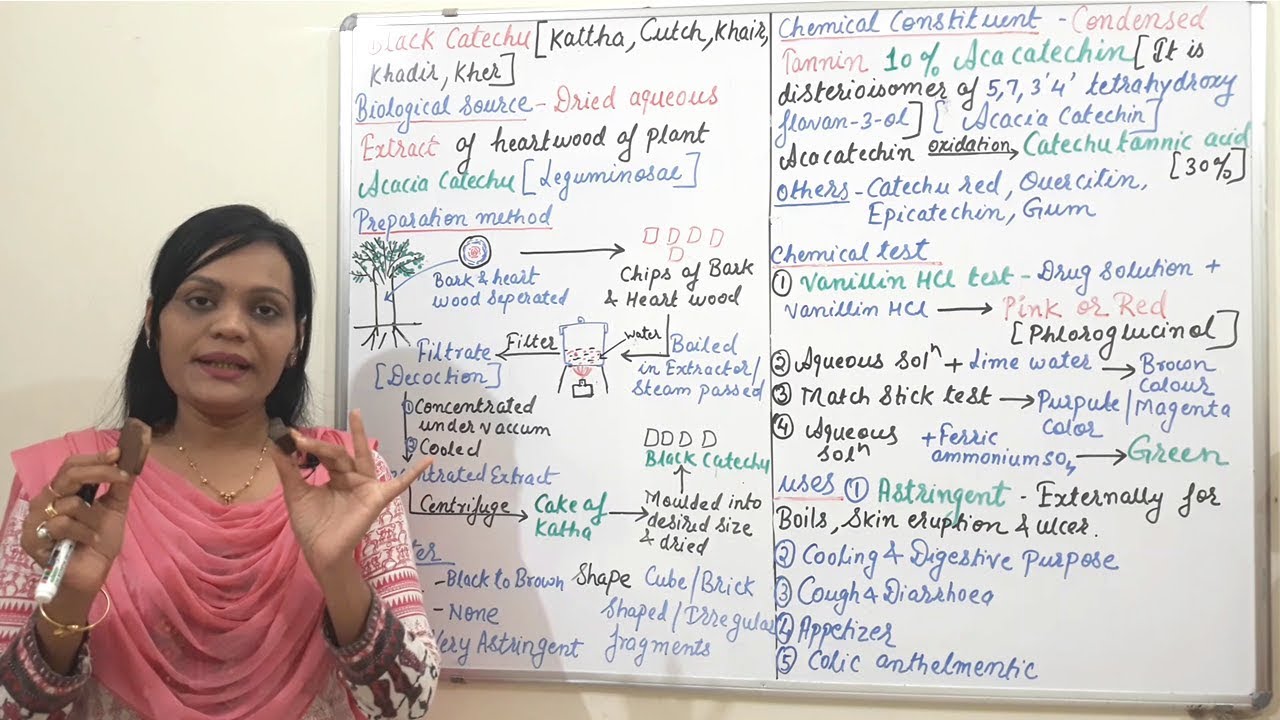 Black Catechu [Kattha, Cutch, Khair,
Khadir, Kher]
Biological source - Dried aqueous
Extract of heartwood of plant
Acacia Catechu [Leguminosae]
Preparation method
Bark & heart
wood Seperated
Chips of Bark
& Heart wood
Boiled
in Extractor/
Steam passed
water
Filter
Filtrate
[Decoction]
① Concentrated
under vaccum
② Cooled
centrated Extract
Centrifuge
Cake of
Katha
Moulded into
desired size
& dried
Black Catechy
- Black to Brown
- None
Very Astringent
Shape Cube/Brick
Shaped/Irregular
fragments
Chemical Constituent - Condensed
Tannin 10% Acacatechin [It is
disterioisomer of 5,7,3'4' tetrahydroxy
flavan-3-ol] [Acacia Catechin]
Acacatechin oxidation Catechu tannic acid
[30%]
Others - Catechu red, Quercitin,
Epicatechin, Gum
Chemical test
① Vanillin HCl test - Drug solution +
Vanillin HCl → Pink or Red
[Phloroglucinol]
② Aqueous solⁿ + Lime water → Brown
Colour
③ Match Stick test → Purpute/Magenta
Color
④ Aqueous solⁿ + Ferric
ammonium SO₄ → Green
Uses ① Astringent - Externally for
Boils, Skin eruption & ulcer.
② Cooling & Digestive Purpose
③ Cough & Diarrhoea
④ Appetizer
⑤ Colic anthelmentic